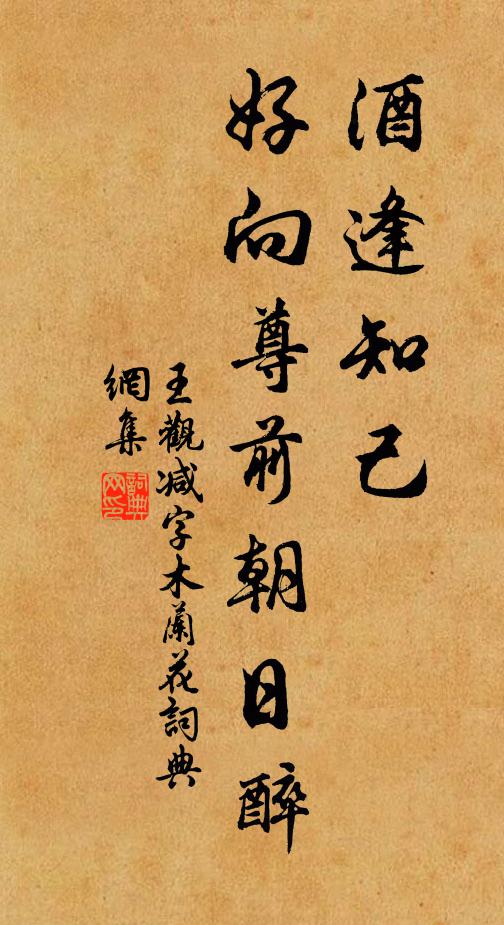 酒逢知己
好向尊前朝日醉
王觀減字木蘭花詞典
網集
詞典
网印